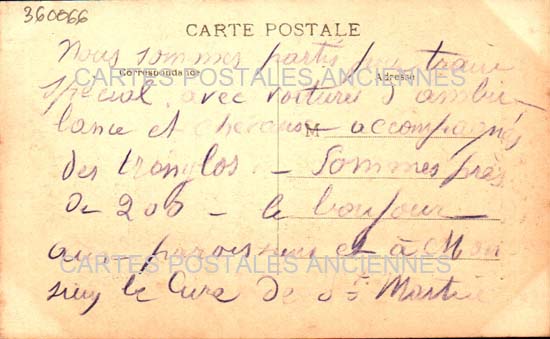 360066
CARTE POSTALE
Nous sommes partis par train
Correspondance
Adresse
CARTES POSTALES ANCIENNES
spécial avec voitures d'ambu-
lance et chevaux — accompagnés
M
des tringlos — Sommes près
de 200 — le bonjour
aux paroissiens et à Mon
CARTES POSTALES ANCIENNES
sieur le Curé de St Martin